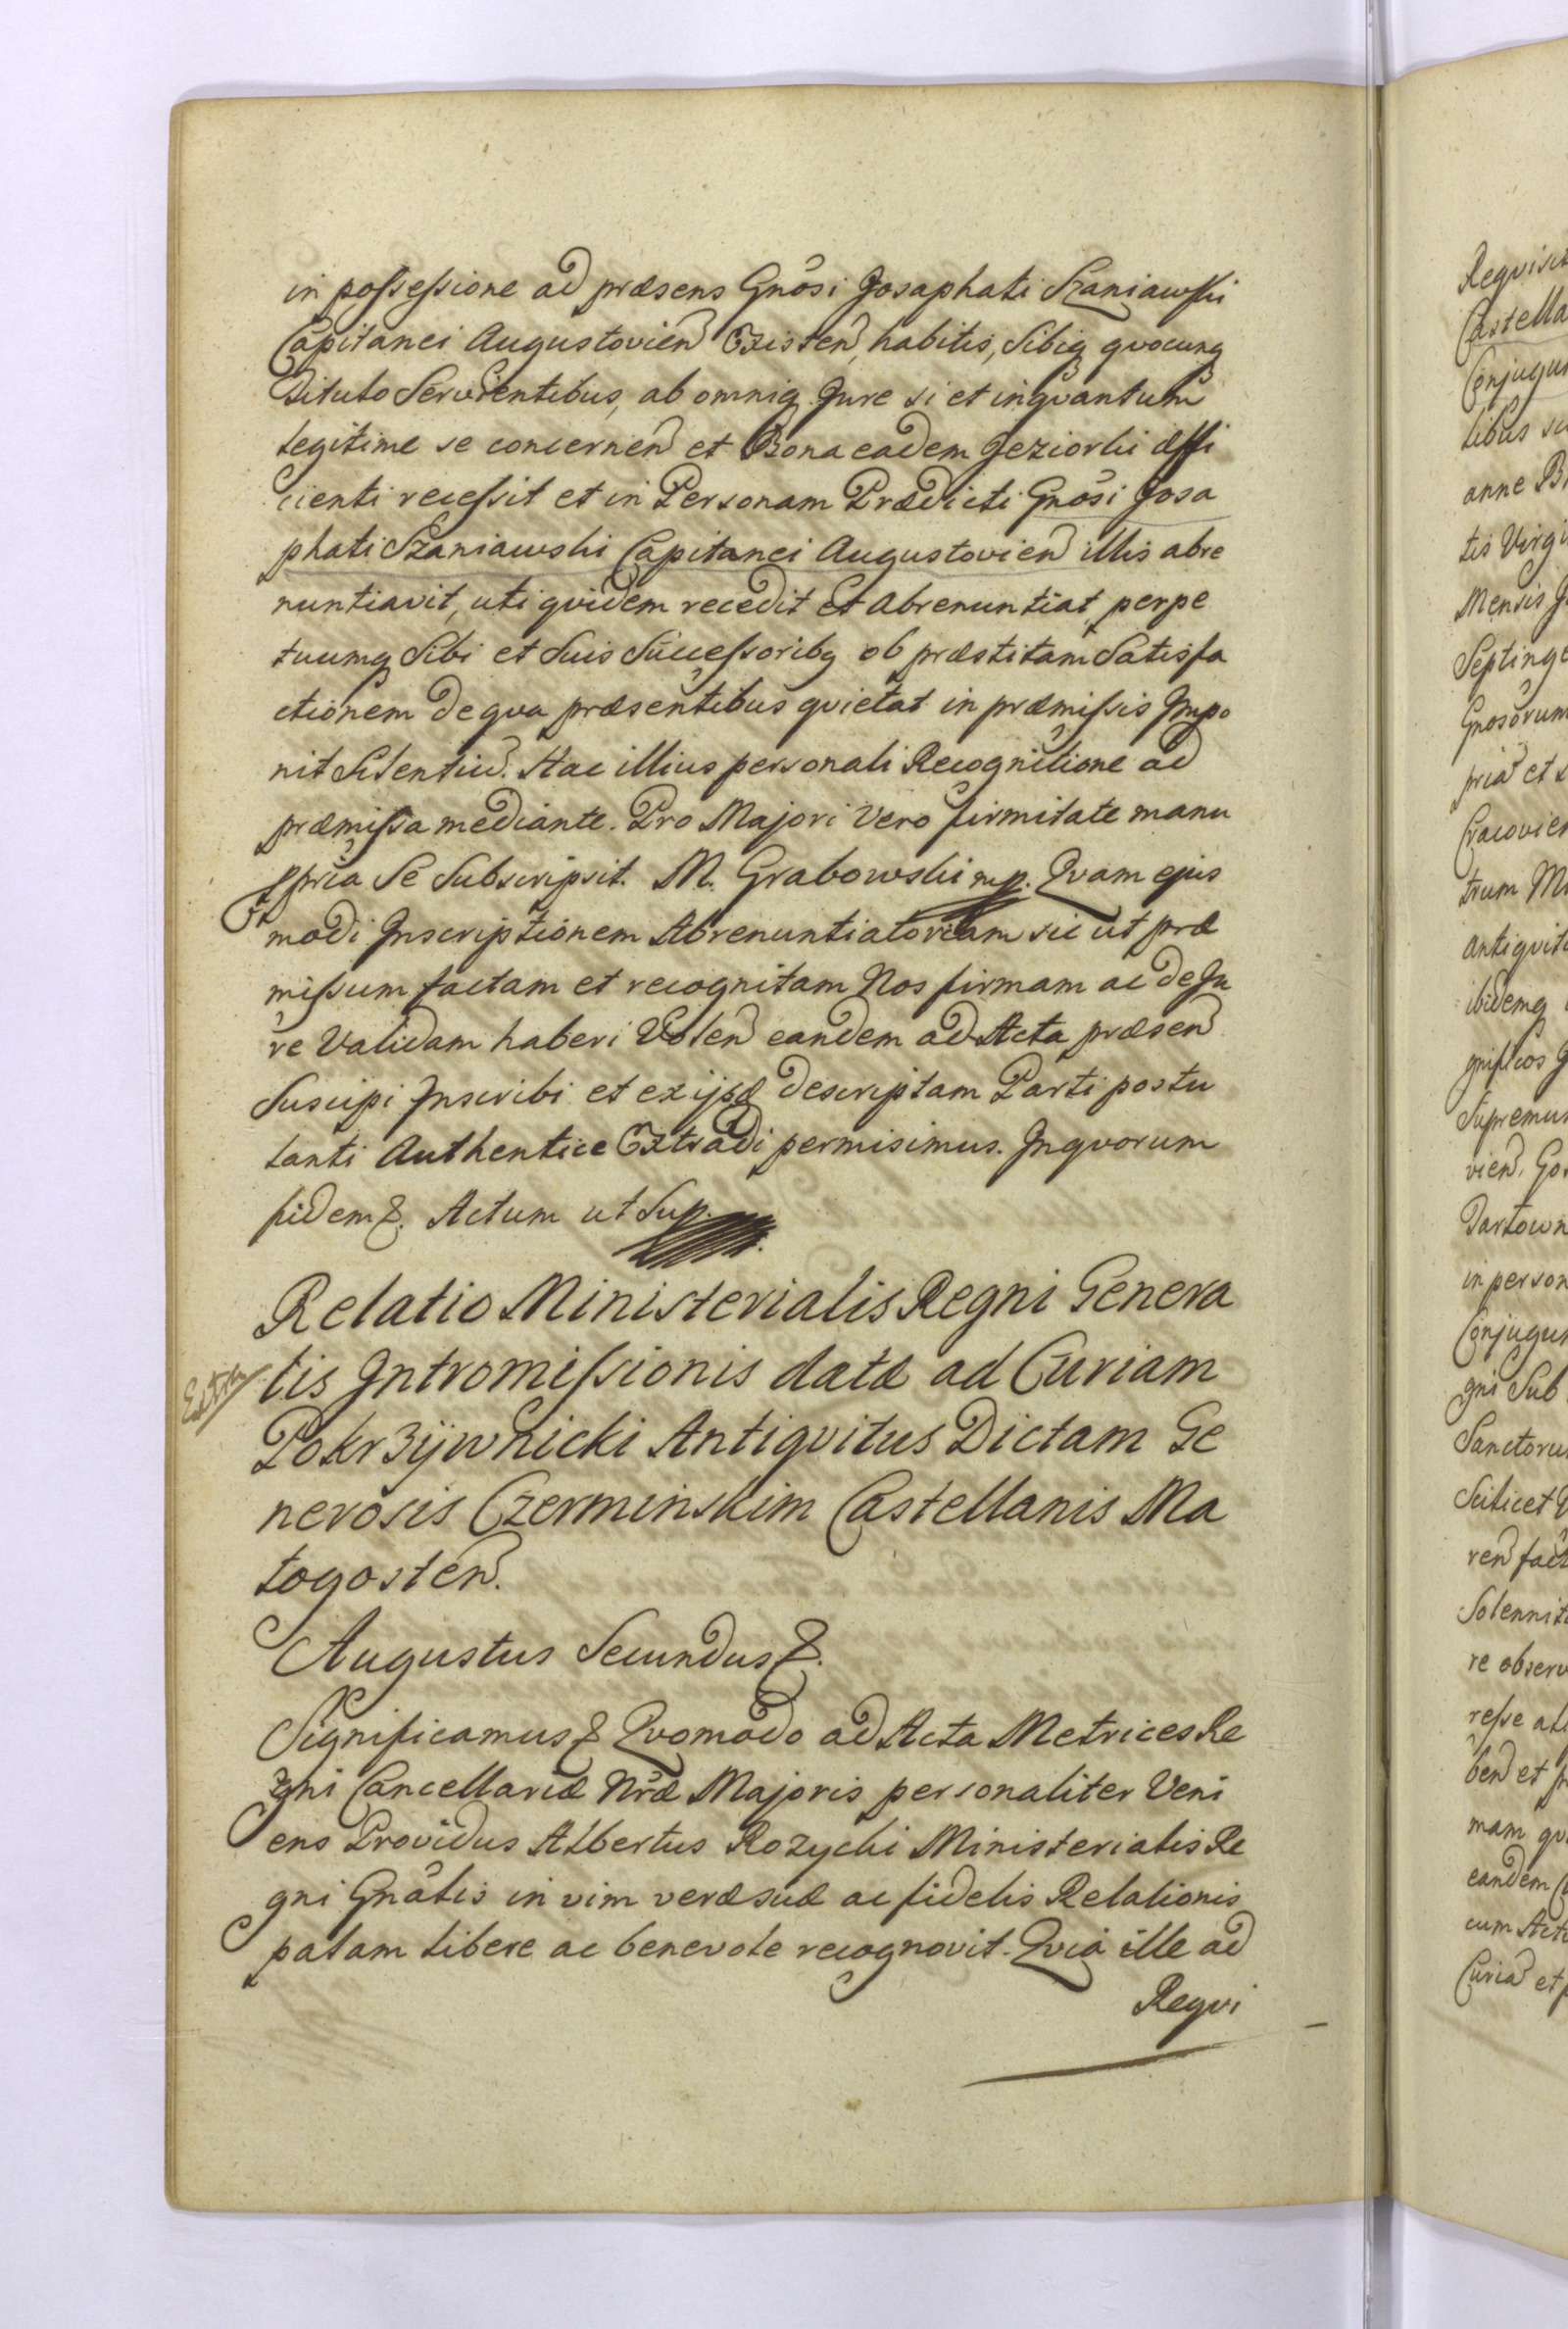 in possessione ad præsens Gnosi Josaphati Szaniawski
Capitanei Augustovien Existen, habitis, Sibiq quocunq
Titulo Servientibus, ab omniq Jure si et inqvantum
legitime se concernen et Bona eadem Jeziorki affi
cienti recessit et in Personam Prædicti Gnosi Josa
phati Szaniawski Capitanei Augustovien illis abre
nuntiavit, uti qvidem recedit et Abrenuntiat, perpe
tuumq Sibi et Suis Successoribq ob præstitam Satisfa
ctionem de qva præsentibus qvietat in præmissis Impo
nit Silentiu. Hac illius personali Recognitione ad
præmissa mediante. Pro Majori vero firmitate manu
ppria Se Subscripsit. M. Grabowski mp. Qvam ejus
modi Inscriptionem Abrenuntiatoriam sic ut præ
missum factam et recognitam Nos firmam ac de Ju
re Validam haberi Volen eandem ad Acta præsen
Suscipi Inscribi et ex ijsd descriptam Parti postu
lanti Authentice Extradi permisimus. Inqvorum
fidem &. Actum ut Sup.
Relatio Ministerialis Regni Genera
lis Intromissionis datæ ad Curiam
Extra
Pokrzÿwnicki Antiqvitus Dictam Ge
nerosis Czerminskim Castellanis Ma
logosten.
Augustus Secundus &.
Significamus & Qvomodo ad Acta Metrices Re
gni Cancellariæ Nræ Majoris personaliter Veni
ens Providus Albertus Rozycki Ministerialis Re
gni Gnalis in vim veræ suæ ac fidelis Relationis
palam libere ac benevole recognovit. Qvia ille ad
Reqvi